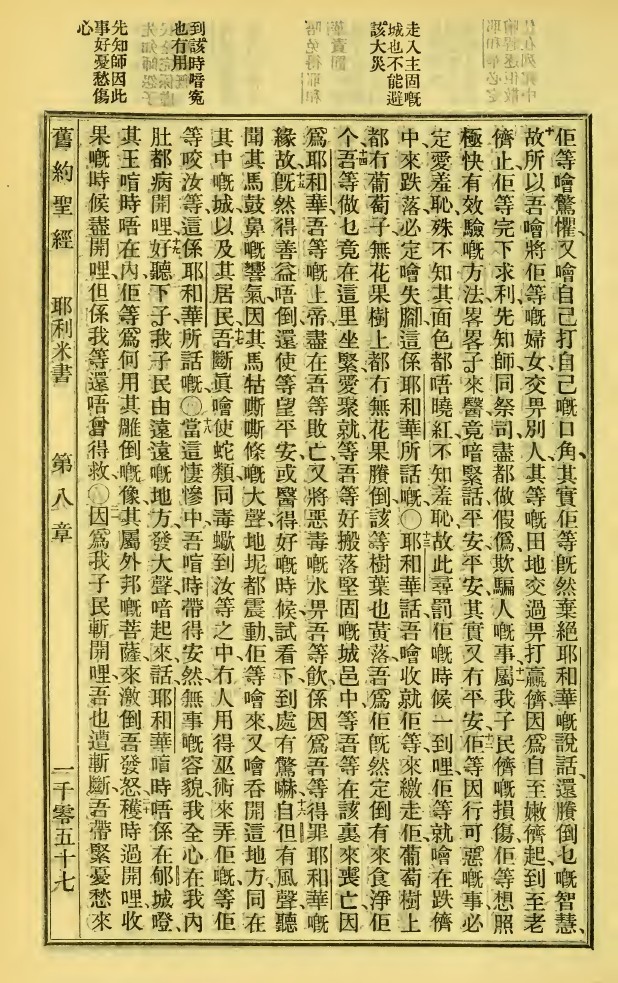 走入主固嘅
城也不能避
該大災
到該時喑冤
也冇用
先知師因此
事好憂愁傷
心
佢等噲驚懼又噲自己打自己嘅口角其實佢等既然棄絕耶和華嘅說話還賸倒乜嘅智慧
十故所以吾噲將佢等嘅婦女交畀別人其等嘅田地交過畀打贏儕因爲自至嫩儕起到至老
儕止佢等完下求利先知師同祭司盡都做假僞欺騙人嘅事十一屬我子民儕嘅損傷佢等想照
極快有效驗嘅方法畧畧子來醫竟喑緊話平安平安其實又冇平安十二佢等因行可惡嘅事必
定愛羞恥殊不知其面色都唔曉紅不知羞恥故此尋罰佢嘅時候一到哩佢等就噲在跌儕
中來跌落必定噲失腳這係耶和華所話嘅〇十三耶和華話吾噲收就佢等來繳走佢葡萄樹上
都冇葡萄子無花果樹上都冇無花果賸倒該等樹葉也黃落吾爲佢既然定倒有來食淨佢
个十四吾等做乜竟在這里坐緊愛聚就等吾等好搬落堅固嘅城邑中等吾等在該裏來喪亡因
爲耶和華吾等嘅上帝盡在吾等敗亡又將惡毒嘅水畀吾等飲係因爲吾等得罪耶和華嘅
緣故十五既然得善益唔倒還使等望平安或醫得好嘅時候試看下到處有驚嚇自十六但有風聲聽
聞其馬鼓鼻嘅響氣因其馬牯嘶嘶條嘅大聲地坭都震動佢等噲來又噲吞開這地方同在
其中嘅城以及其居民十七吾斷眞噲使蛇類同毒蠍到汝等之中冇人用得巫術來弄佢嘅等佢
等咬汝等這係耶和華所話嘅〇十八當這悽慘中吾喧時帶得安然無事嘅容貌我全心在我內
肚都病開哩十九好聽下子我子民由遠遠嘅地方發大聲喑起來話耶和華喧時唔係在郇城噔
其王喧時唔在內佢等爲何用其雕倒嘅像其屬外邦嘅菩薩來激倒吾發怒二十穫時過開哩收
果嘅時候盡開哩但係我等還唔曾得救〇二一因爲我子民斬開哩吾也遭斬斷吾帶緊憂愁來
舊約聖經 耶利米書 第八章 一千零五十七